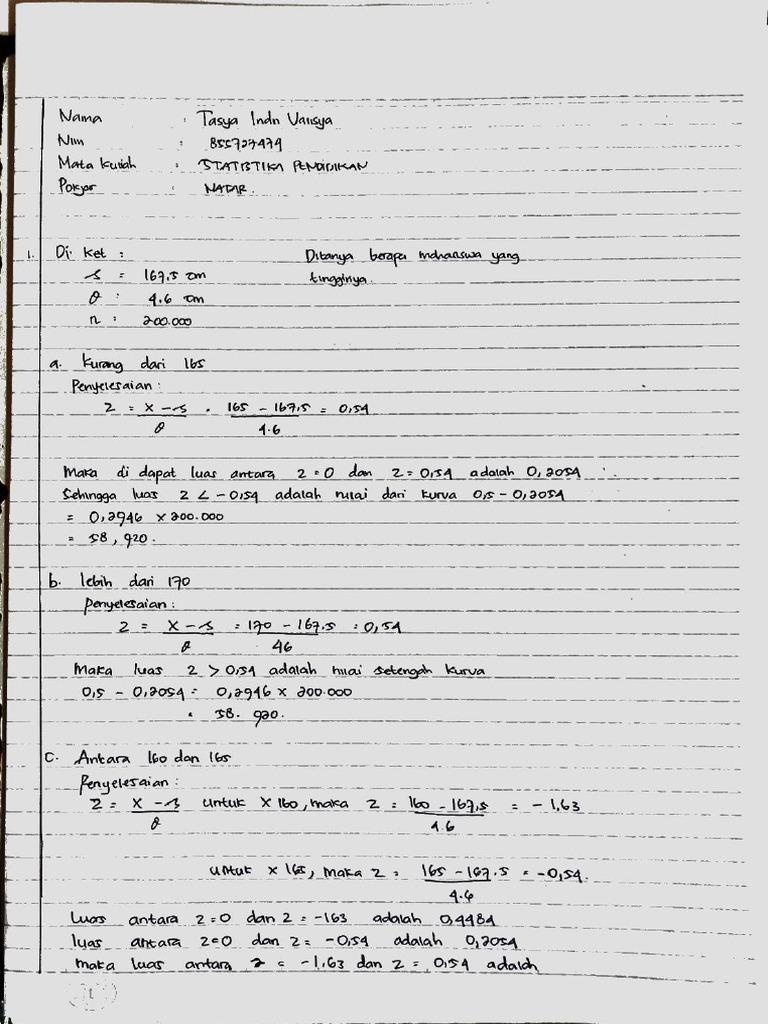 Nama : Tasya Indri Varisya
Nim : 855727479
Mata kuliah : STATISTIKA PENDIDIKAN
Pokjar : NATAR.
1. Di ket : Ditanya berapa mahasiswa yang
s = 167,5 cm tingginya.
θ : 4.6 cm
n : 200.000
a. kurang dari 165
Penyelesaian :
Z = x - s = 165 - 167,5 = 0,54
θ 4.6
Maka di dapat luas antara z = 0 dan z = 0,54 adalah 0,2054
Sehingga luas z < - 0,54 adalah nilai dari kurva 0,5 - 0,2054
= 0,2946 x 200.000
= 58,920.
b. lebih dari 170
penyelesaian :
z = x - s = 170 - 167,5 = 0,54
θ 46
Maka luas z > 0,54 adalah nilai setengah kurva
0,5 - 0,2054 = 0,2946 x 200.000
= 58. 920.
C. Antara 160 dan 165
Penyelesaian :
z = x - s untuk x 160, maka z = 160 - 167,5 = - 1,63
θ 4.6
untuk x 165, maka z = 165 - 167.5 = -0,54.
4.6
Luas antara z = 0 dan z = -163 adalah 0,4484
luas antara z=0 dan z = -0,54 adalah 0,2054
maka luas antara z = -1,63 dan z = 0,54 adalah
1